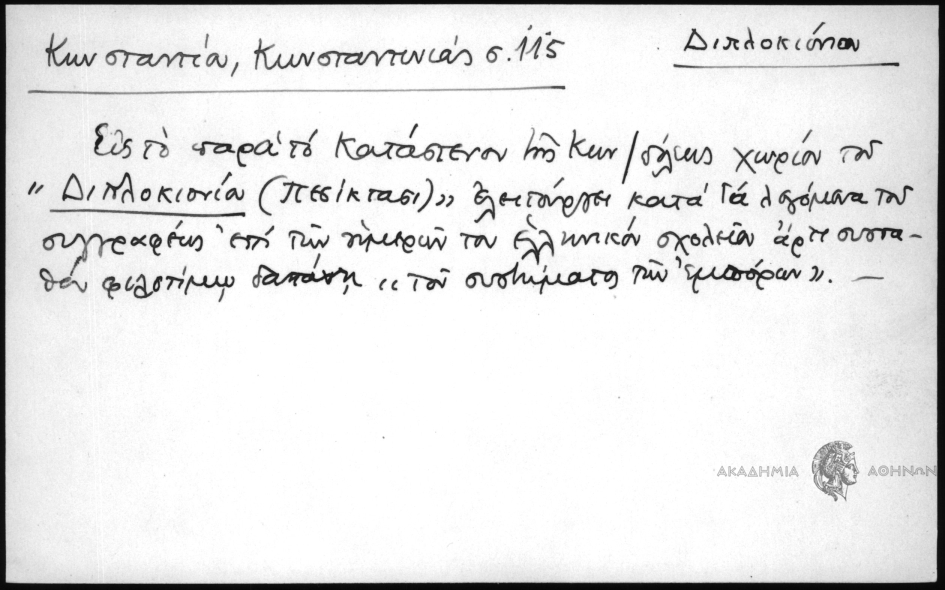 Κωνσταντία, Κωνσταντινιάς σ. 115
Διπλοκιόνιον
Εἰς τὸ παρὰ τὸ Κατάστενον τῆς Κων/πόλεως χωρίον τοῦ
" Διπλοκιονία (Πεσίκτασι)» ἐλειτούργει κατὰ τὰ λεγόμενα τοῦ
συγγραφέως ἐπὶ τῶν ἡμερῶν του ἑλληνικὸν σχολεῖον ἄρτι συστα-
θὲν φιλοτίμῳ δαπάνῃ «τοῦ συστήματος τῶν ἐμπόρων». —
ΑΚΑΔΗΜΙΑ ΑΘΗΝΩΝ